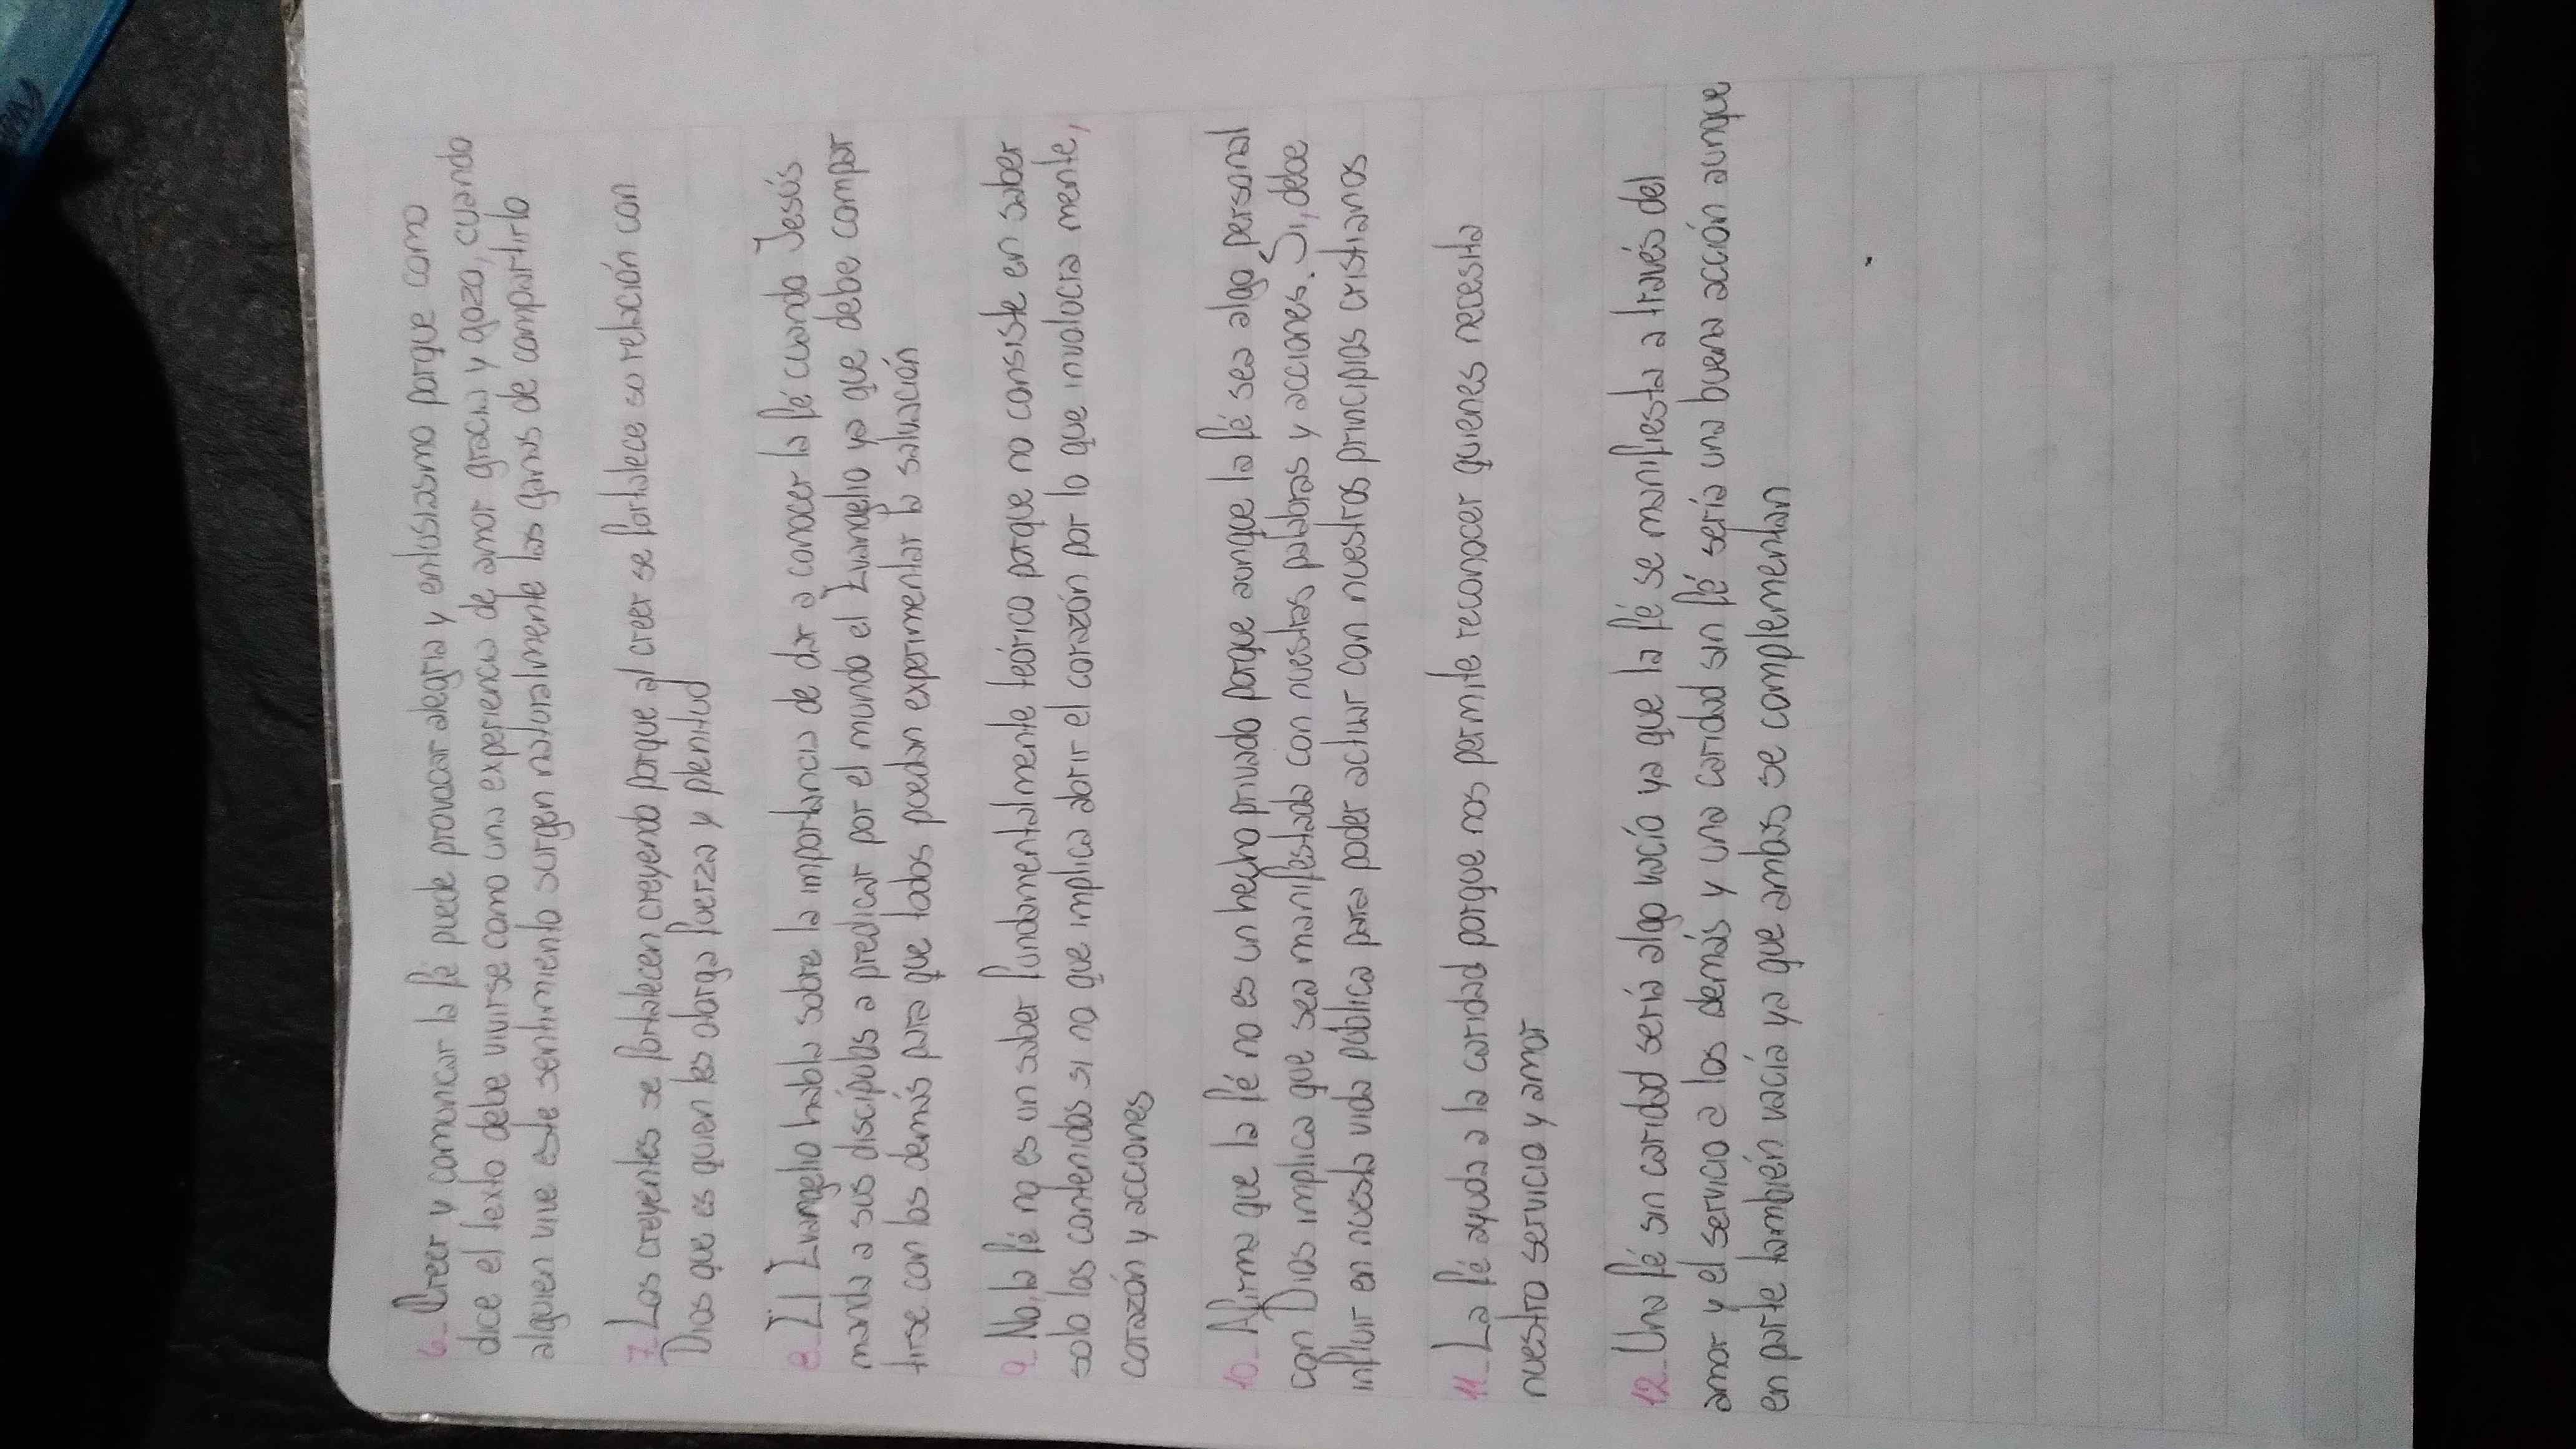 6_ Creer y comunicar la fé puede provocar alegría y entusiasmo porque como
dice el texto debe vivirse como una experiencia de amor gracia y gozo, cuando
alguien vive este sentimiento surgen naturalmente las ganas de compartirlo
7_ Los creyentes se fortalecen creyendo porque al creer se fortalece su relación con
Dios que es quien les otorga fuerza y plenitud
8_ El Evangelio habla sobre la importancia de dar a conocer la fé cuando Jesús
manda a sus discípulos a predicar por el mundo el Evangelio ya que debe compar
tirse con los demás para que todos puedan experimentar la salvación
9_ No, la fé no es un saber fundamentalmente teórico porque no consiste en saber
solo los contenidos si no que implica abrir el corazón por lo que involucra mente,
corazón y acciones
10_ Afirma que la fé no es un hecho privado porque aunque la fé sea algo personal
con Dios implica que sea manifestado con nuestras palabras y acciones. Si, debe
influir en nuestra vida pública para poder actuar con nuestros principios cristianos
11_ La fé ayuda a la caridad porque nos permite reconocer quienes necesita
nuestro servicio y amor
12_ Una fé sin caridad sería algo vacío ya que la fé se manifiesta a través del
amor y el servicio a los demás y una caridad sin fé sería una buena acción aunque
en parte también vacía ya que ambas se complementan